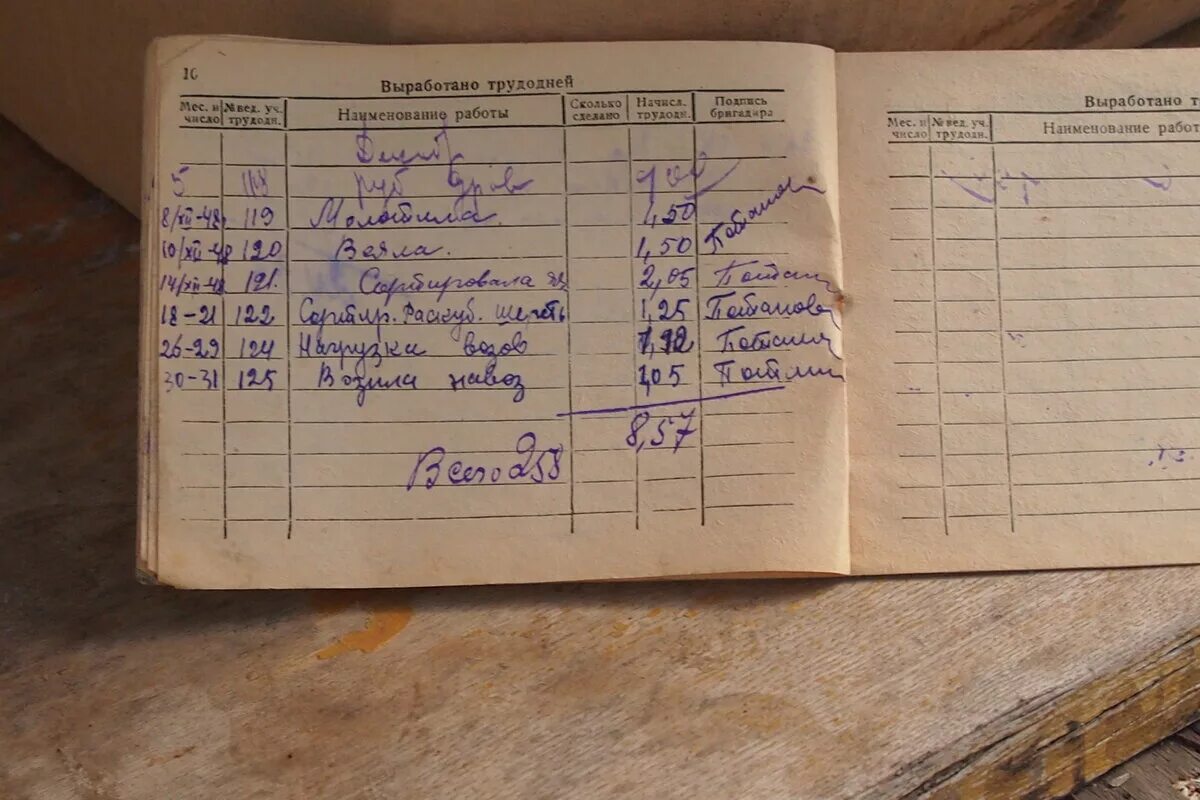 10
Выработано трудодней
Мес. и число № вед. уч. трудодн. Наименование работы Сколько сделано Начисл. трудодн. Подпись бригадира
5 118 руб дров
8/XII-48 119 Молотила. 1,50
10/XII-48 120 Веяла. 1,50 Потанов
14/XII-48 121. Сортировала 2,05
18-21 122 Сортир. Раскуб. шерсть 1,25 Потанова
26-29 124 Нагрузка возов
30-31 125 Возила навоз 1,05
8,57
Всего 258
Выработано т
Мес. и число № вед. уч. трудодн. Наименование работ